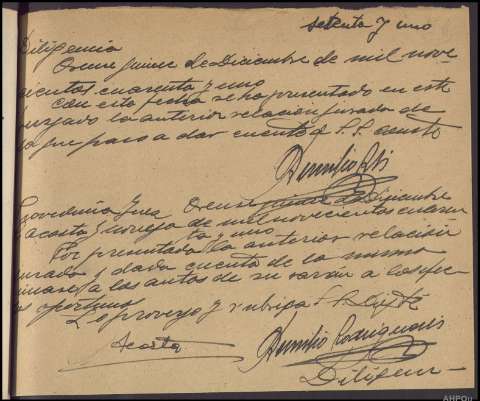 setenta y uno
Diligencia
Orense quince de Diciembre de mil nove-
cientos cuarenta y uno
Con esta fecha se ha presentado en este
Juzgado la anterior relacion jurada de
la que paso a dar cuenta a S.S. doy fe
Aurelio
Providencia Juez Orense quince de Diciembre
Acosta y noreja de mil novecientos cuaren
ta y uno
Por presentada la anterior relacion
jurada y dada cuenta de la misma
unase a los autos de su razon a los efec-
tos oportunos
Lo proveyo y rubrica S.S. doy fe
Acosta
Aurelio Rodriguez
Diligen-
AHPOu